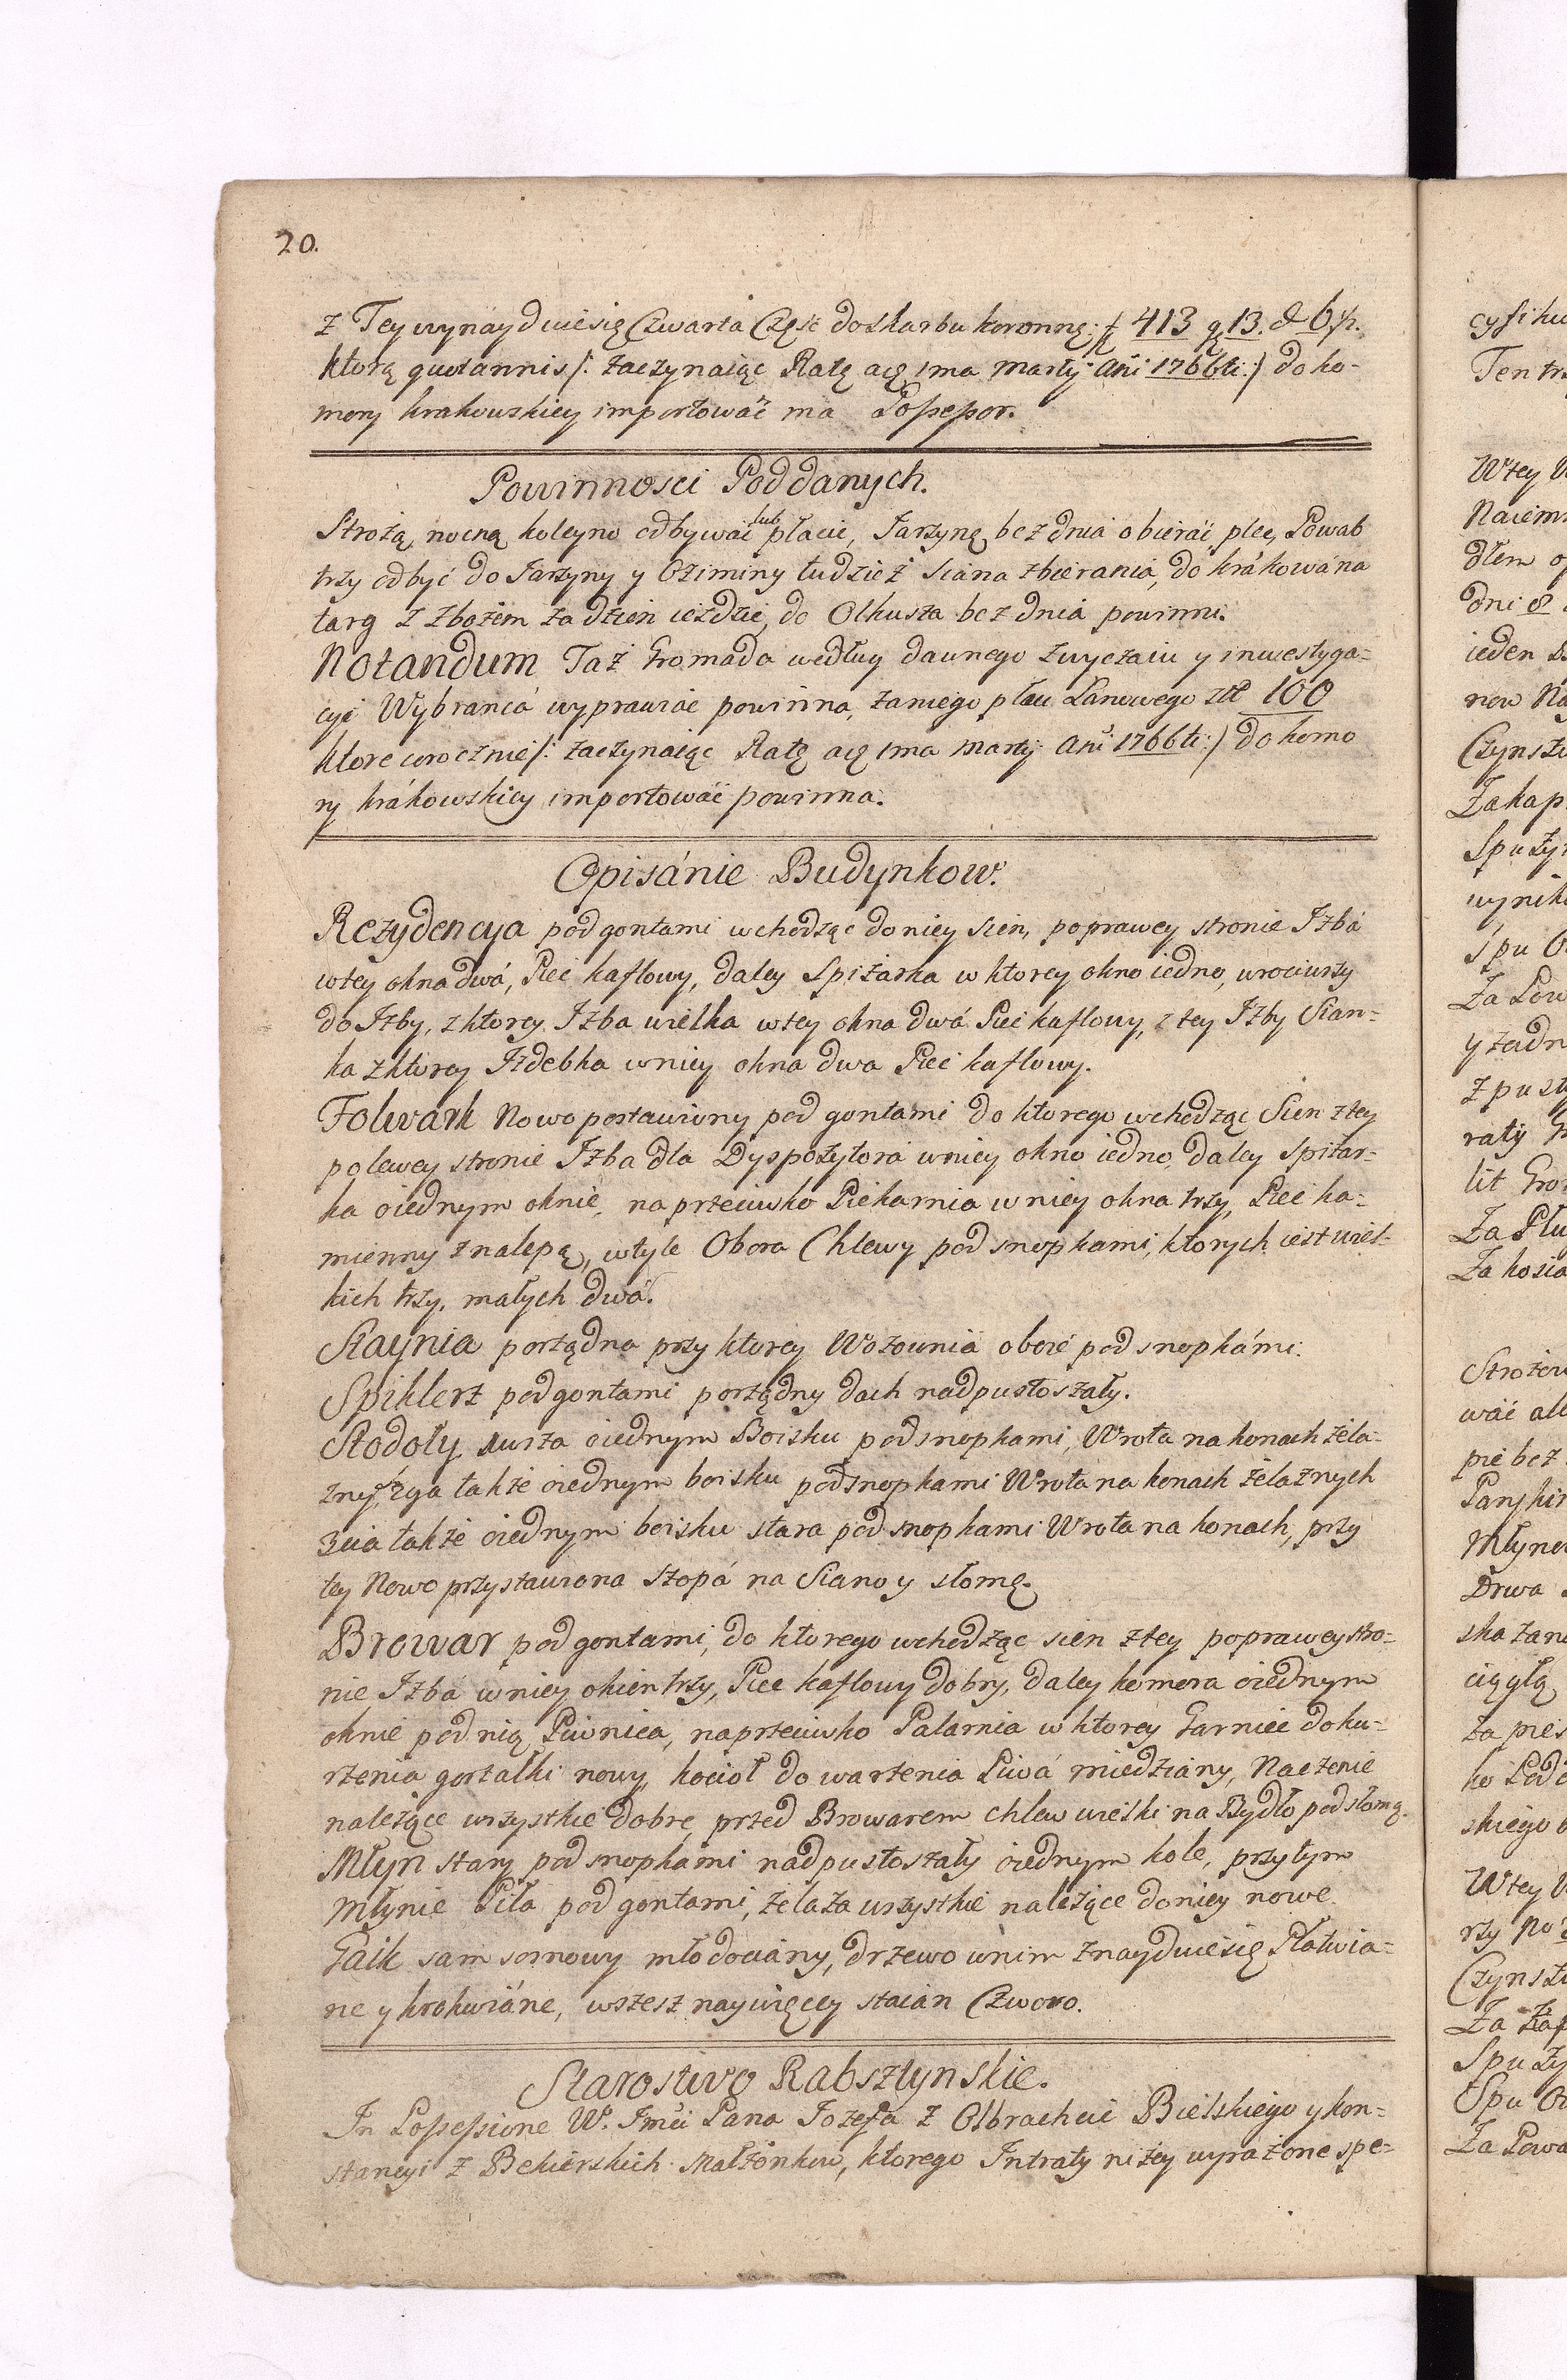 20.
z Tey wynayduie się Czwarta Część do skarbu koronnę: f 413 g 13. d 6 1/2.
ktorą quotannis /: zaczynaiąc Ratę a 1ma Martij Ani 1766ti :/ do ko-
mory krakowskiey importowáć ma Possessor.
Powinnosci Poddanych.
Strożą nocną koleyno odbywáć lub płacić, Jarzynę bez dnia obieráć pleć, Powab
trzy odbyć do Jarzyny y Oziminy tudzież Siána zbierania, do krákowá na
targ z zbożem za dzień ieździć, do Olkusza bez dnia powinni.
Notandum Taż Gromada według dawnego zwyczaiu y inwestyga-
cyi Wybráncá wyprawiać powinna, za niego płaci Łanowego zł 100
ktore corocznie /: zaczynaiąc Ratę a 1ma Martij Ani 1766ti :/ do komo
ry krákowskiey importowáć powinna.
Opisánie Budynkow.
Rezydencya pod gontami wchodząc do niey Sień, po prawey stronie Izbá
w tey okna dwá, Piec kaflowy, daley Spiżarka w ktorey okno iedno, wrociwszy
do Izby, z ktorey Izba wielka w tey okna dwá Piec kaflowy, z tey Izby Sian-
ka z ktorey Izdebka w niey okna dwa Piec kaflowy.
Folwárk Nowo postawiony pod gontami do ktorego wchodząc Sień z tey
po lewey stronie Izba dla Dyspozytora w niey okno iedno, daley Spiżar-
ka o iednym oknie, na przeciwko Piekarnia w niey okna trzy, Piec ka-
mienny z nalepą, w tyle Obora Chlewy pod snopkami, ktorych iest wiel-
kich trzy, małych dwá.
Staynia porządna przy ktorey Wozownia oboie pod snopkámi.
Spiklerz pod gontami porządny dach nadpustoszały.
Stodoły 1wsza o iednym Boisku pod snopkami, Wrota na konach żela-
znych, 2ga także o iednym boisku pod snopkami Wrota na konach żelaznych
3cia także o iednym boisku stara pod snopkami Wrota na konach, przy
tey Nowo przystawiona Szopá na Siano y słomę.
Browar pod gontami, do ktorego wchodząc sień z tey po prawey stro-
nie Izbá w niey okien trzy, Piec kaflowy dobry, daley komora o iednym
oknie pod nią Piwnica, naprzeciwko Palarnia w ktorey Garniec do ku-
rzenia gorzałki nowy, kocioł do warzenia Piwá miedziany, Naczenie
należące wszystkie dobre, przed Browarem chlew wielki na Bydło pod słomą.
Młyn stary pod snopkami nadpustoszały o iednym kole, przy tym
Młynie Piła pod gontami, żelaza wszystkie należące do niey nowe.
Gaik sam sosnowy młodociány, drzewo w nim znayduie się Płatwia-
ne y krokwiáne, wszesz naywięcey staian Czworo.
Starostwo Rabsztynskie.
In Possessione W. Jmći Pana Jozefa z Olbrachcic Bielskiego y kon-
stancyi z Bekierskich Małżonkow, ktorego Intraty niżey wyrażone spe-
Ten
W tey
dni 8
ieden
Stroże
pie bez
Drwa
ciągłą
skiego
W tey